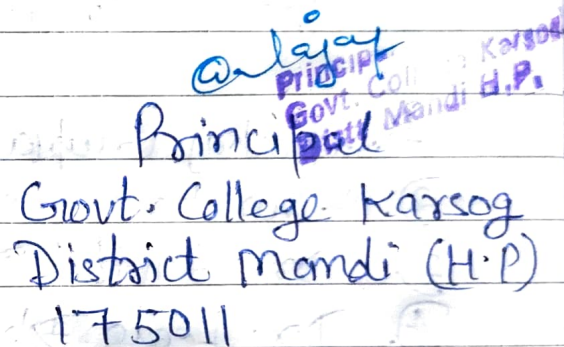 Principal
Govt. College Karsog
Distt Mandi H.P.
Principal
Govt. College Karsog
District Mandi (H.P)
175011